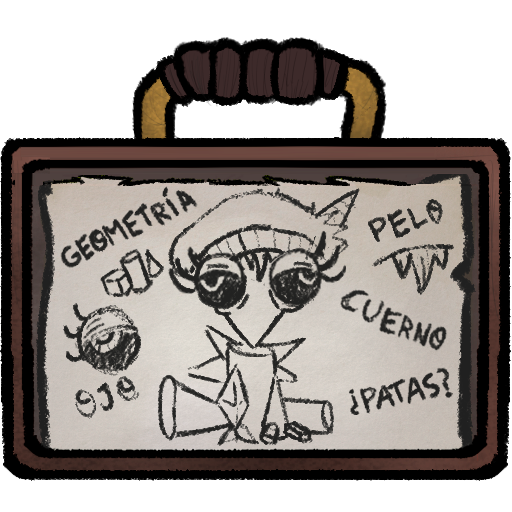 GEOMETRÍA
PELO
CUERNO
OJO
¿PATAS?